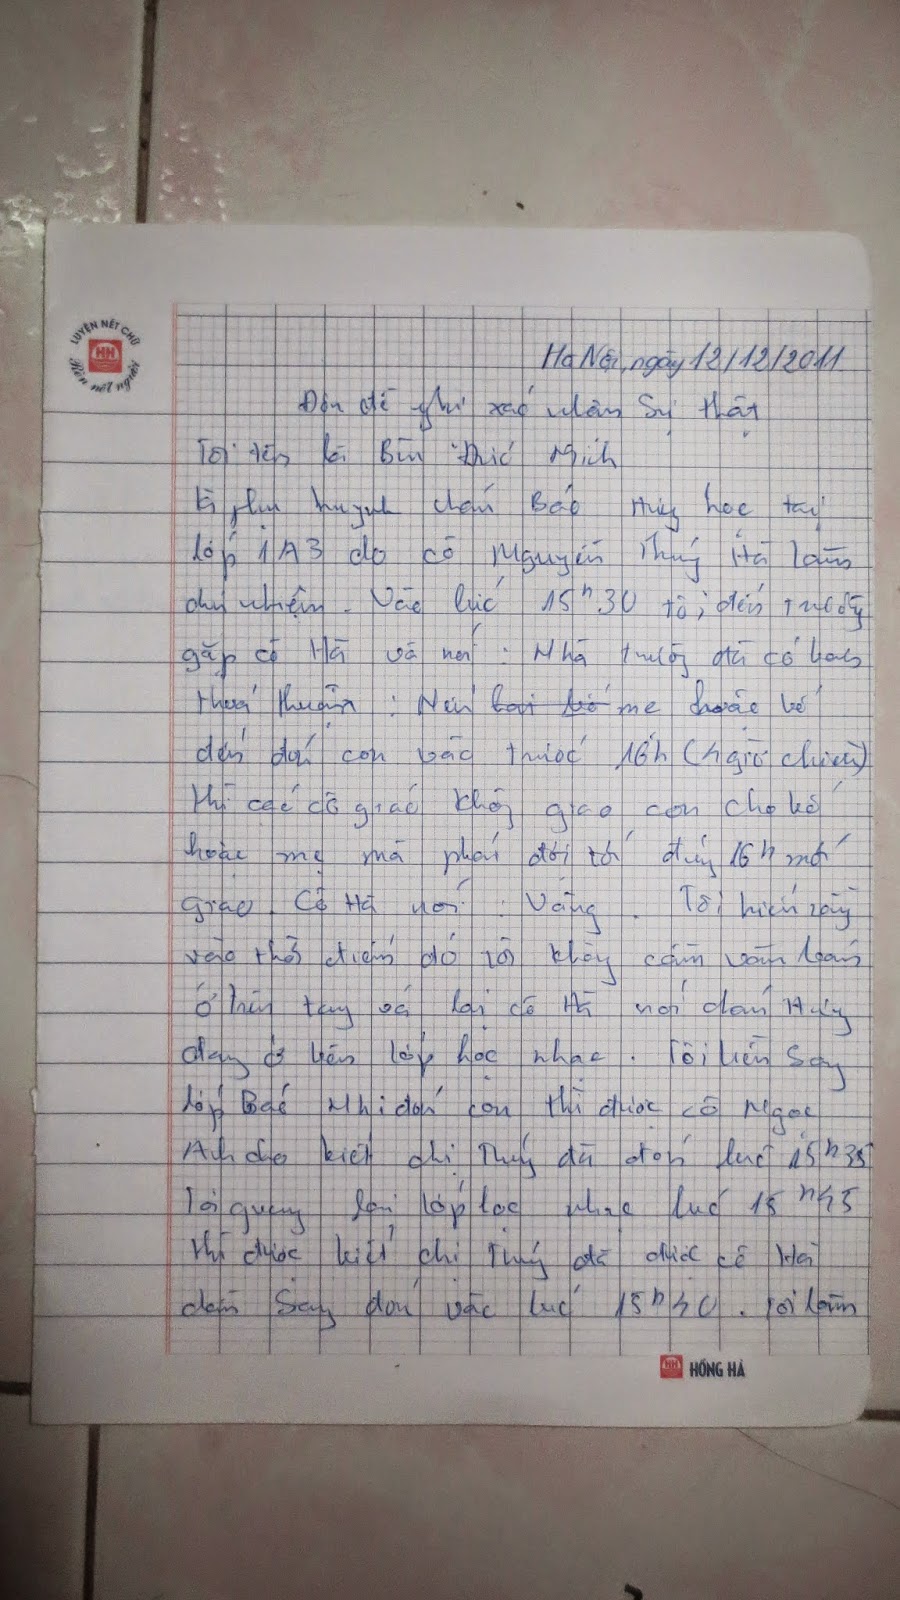 LUYỆN NÉT CHỮ
HH
Rèn nết người
Hà Nội, ngày 12/12/2011
Đơn đề nghị xác nhận Sự thật
Tôi tên là Bùi Minh
là phụ huynh cháu Bảo Huy học tại
lớp 1A3 do cô Nguyễn Thúy Hà làm
chủ nhiệm. Vào lúc 15h30 tôi đến trường
gặp cô Hà và nói : Nhà trường đã có
thoả thuận : Nếu mẹ hoặc bố
đến đón con vào trước 16h (4 giờ chiều)
thì các cô giáo không giao con cho bố
hoặc mẹ mà phải đợi tới đúng 16h mới
giao. Cô Hà nói : Vâng. Tôi hiểu rằng
vào thời điểm đó tôi không cầm văn bản
ở trên tay và lại cô Hà nói cháu Huy
đang ở bên lớp học nhạc. Tôi liền Sang
lớp Bảo Nhi đón con thì được cô Ngọc
Anh cho biết chị Thúy đã đón lúc 15h35
Tôi quay lại lớp học nhạc lúc 15h45
thì được biết chị Thúy đã được cô Hà
dẫn Sang đón vào lúc 15h40. Tôi làm
HH HỒNG HÀ